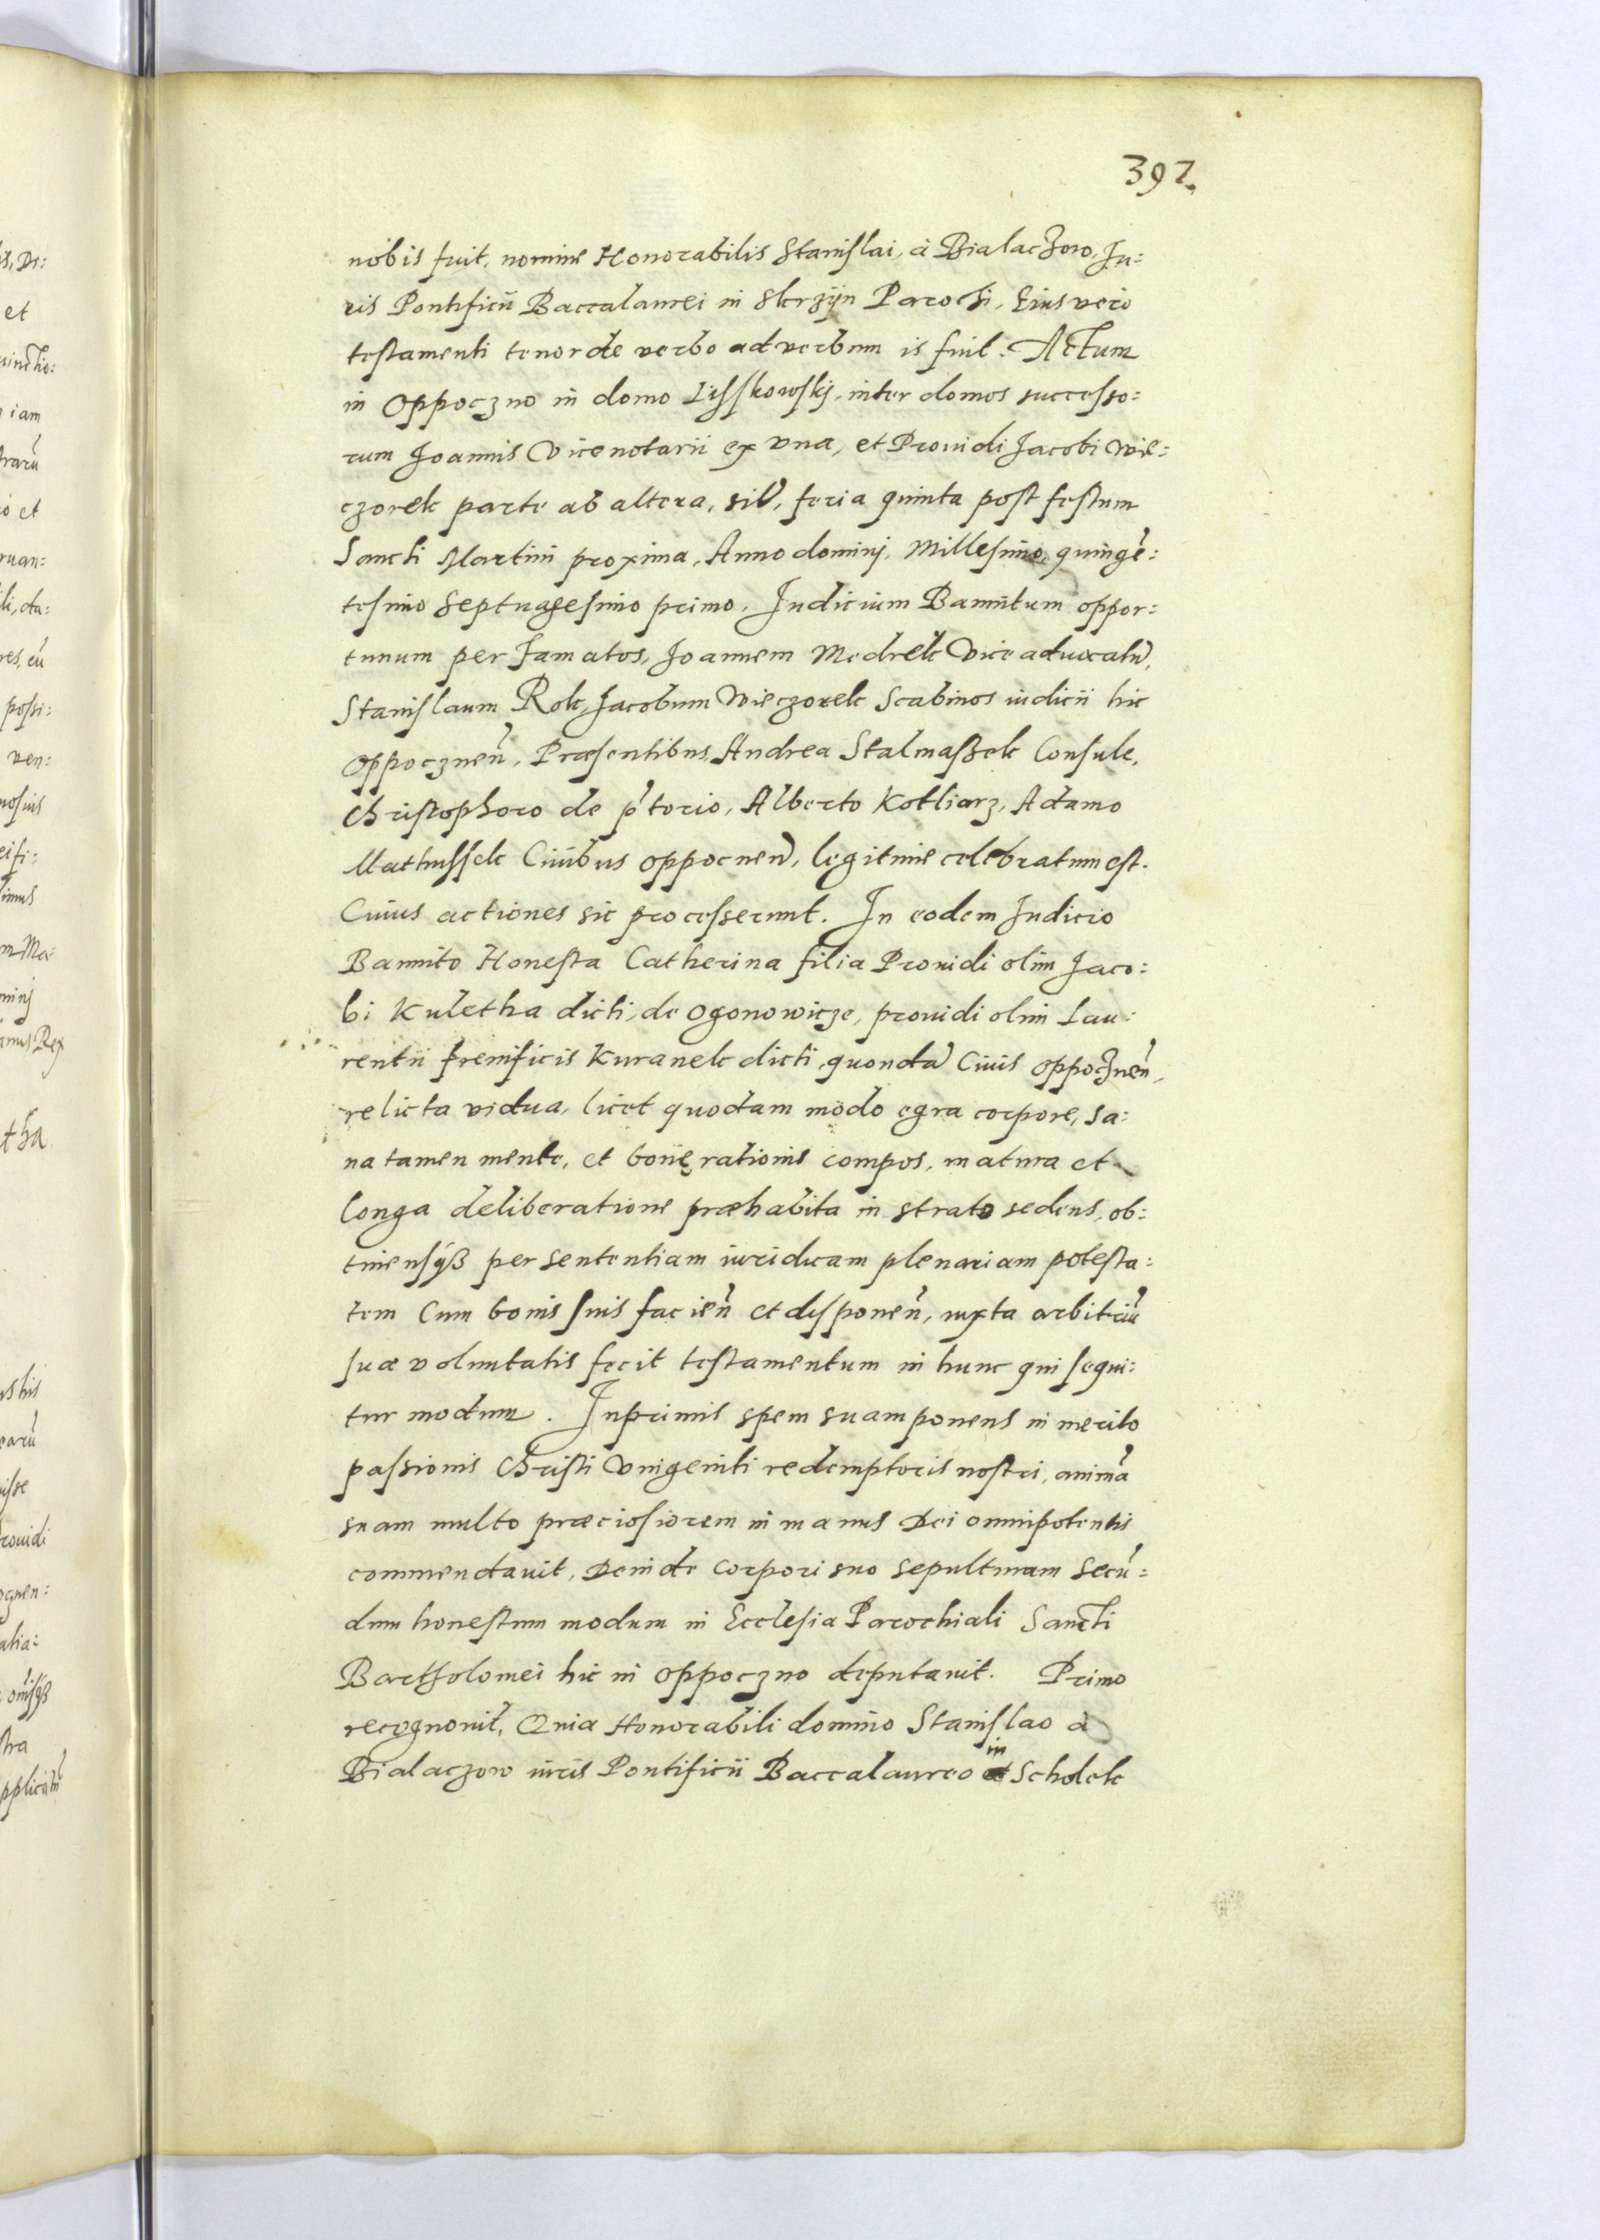 397.
nobis fuit, nomine Honorabilis Stanislai, à Bialaczow, Ju:
ris Pontificii Baccalaurei in Skrzÿn Parochi, Eius vero
testamenti tenor de verbo ad verbum is fuit. Actum
in Oppoczno in domo Lisskowskj, inter domos successo:
rum Joannis Vicenotarii ex vna, et Prouidi Jacobi Wie:
czorek parte ab altera, sit̃, feria quinta post festum
Sancti Martini proxima, Anno dominj, Millesimo, quingẽ:
tesimo Septuagesimo primo. Judicium Bannitum oppor:
tunum per Famatos, Joannem Medrek Viceaduocatũ,
Stanislaum Rok, Jacobum Wieczorek Scabinos iudicii hic
Oppocznen̄, Præsentibus, Andrea Stalmaszek Consule,
Christophoro de p̃torio, Alberto Kotliarz, Adamo
Mathussek Ciuibus Oppocnen̄, legitime celebratum est.
Cuius actiones sic processerunt. In eodem Judicio
Bannito Honesta Catherina filia Prouidi olim Jaco:
bi Kuletha dicti, de Ogonowicze, prouidi olim Lau:
rentii frenificis Kuranek dicti, quondã Ciuis Oppocznen̄,
relicta vidua, licet quodam modo egra corpore, sa:
na tamen mente, et bonę rationis compos, matura et
longa deliberatione præhabita in strato sedens, ob:
tinensqȝ per sententiam iuridicam plenariam potesta:
tem Cum bonis suis facien̄ et disponen̄, iuxta arbitriũ
suæ voluntatis fecit testamentum in hunc qui sequi:
tur modum. Inprimis spem suam ponens in merito
passionis Christi Vnigeniti redemptoris nostri, animã
suam multo præciosiorem in manus Dei omnipotentis
commendauit, Deinde corpori suo sepulturam secũ:
dum honestum modum in Ecclesia Parochiali Sancti
Bartholomei hic in Oppoczno deputauit. Primo
recognouit, Quia Honorabili domino Stanislao à
Bialaczow iuris Pontificii Baccalaureo in Scholek